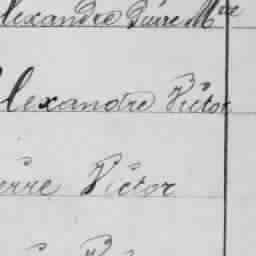 lexandre Pierre Mre
Alexandre Victor
ierre Victor